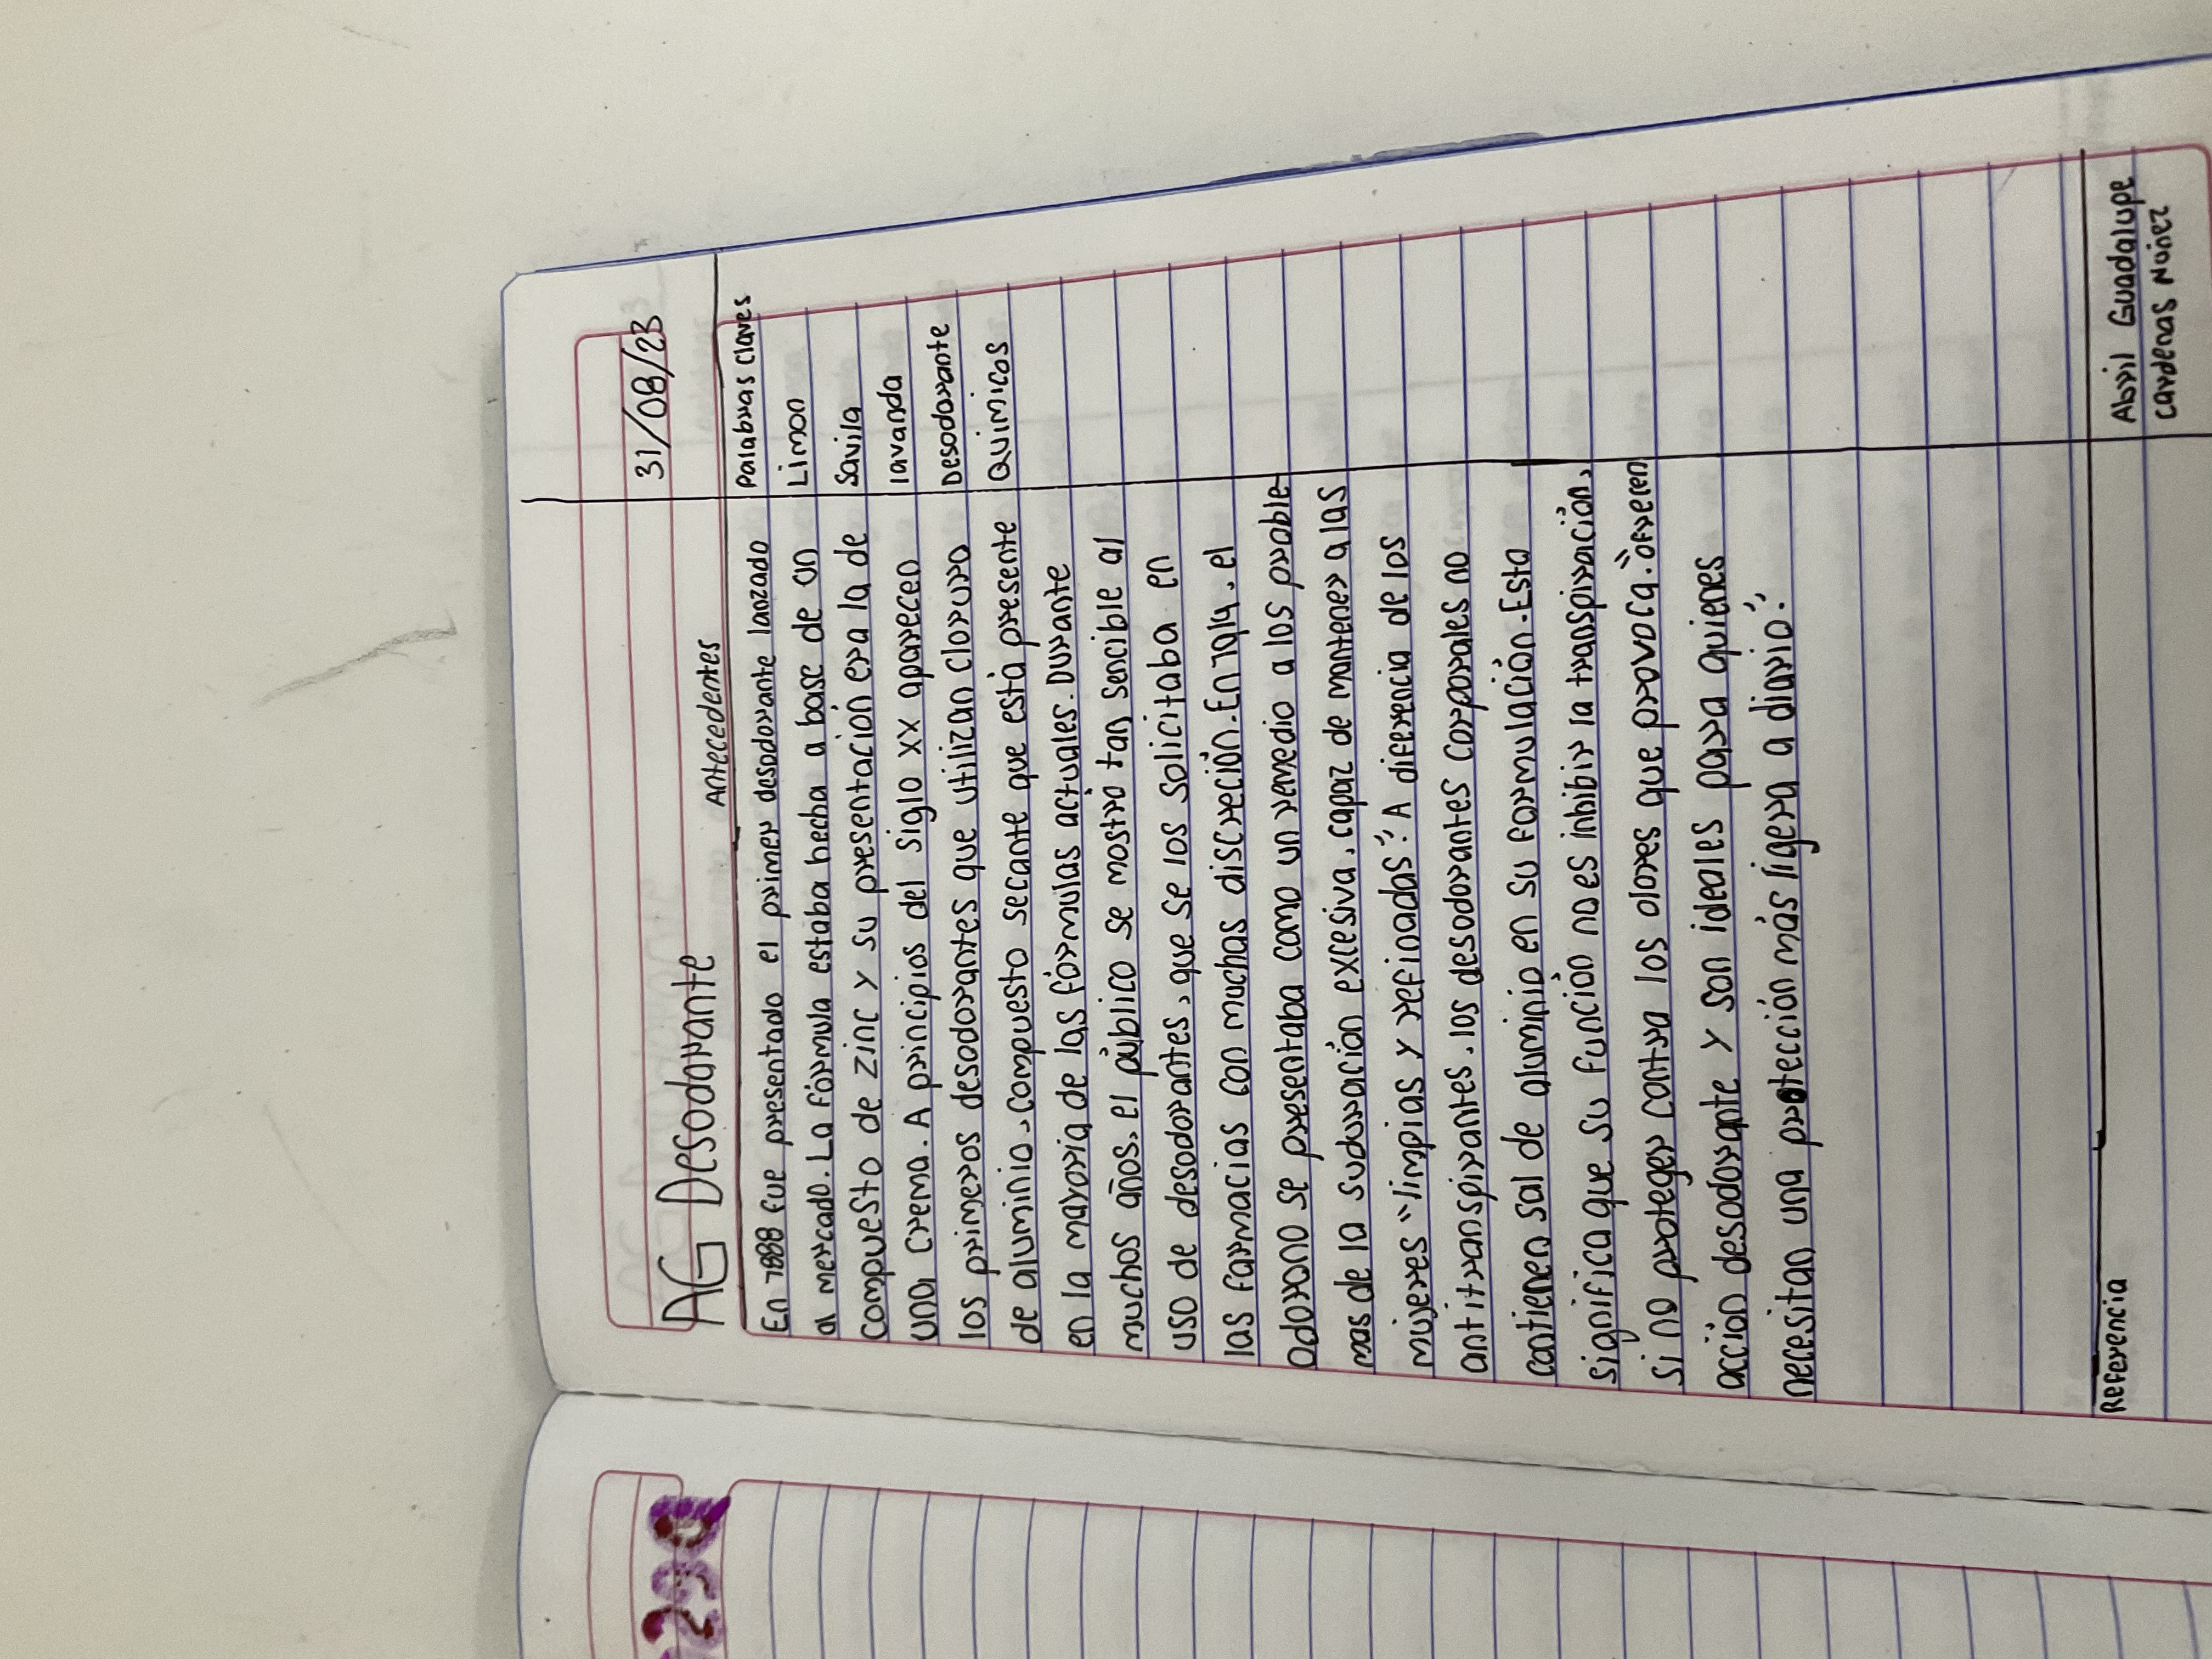 31/08/23
AG Desodorante Antecedentes
Palabras claves
Limon
Savila
lavanda
Desodorante
Quimicos
En 1888 fue presentado el primer desodorante lanzado
al mercado. La fórmula estaba hecha a base de un
compuesto de zinc y su presentación era la de
una crema. A principios del siglo xx aparecen
los primeros desodorantes que utilizan cloruro
de aluminio, compuesto secante que está presente
en la mayoria de las fórmulas actuales. Durante
muchos años, el público se mostró tan sencible al
uso de desodorantes, que se los solicitaba en
las farmacias con muchas discreción. En 1914, el
Odorono se presentaba como un remedio a los proble-
mas de la suduración excesiva, capaz de mantener a las
mujeres "limpias y refinadas". A diferencia de los
antitranspirantes, los desodorantes corporales no
contienen sal de aluminio en su formulación. Esto
significa que su función no es inhibir la transpiración,
si no proteger contra los olores que provoca. "ofrecen
acción desodorante y son ideales para quienes
necesitan una protección más ligera a diario".
Referencia
Abril Guadalupe
Cardenas Nuñez